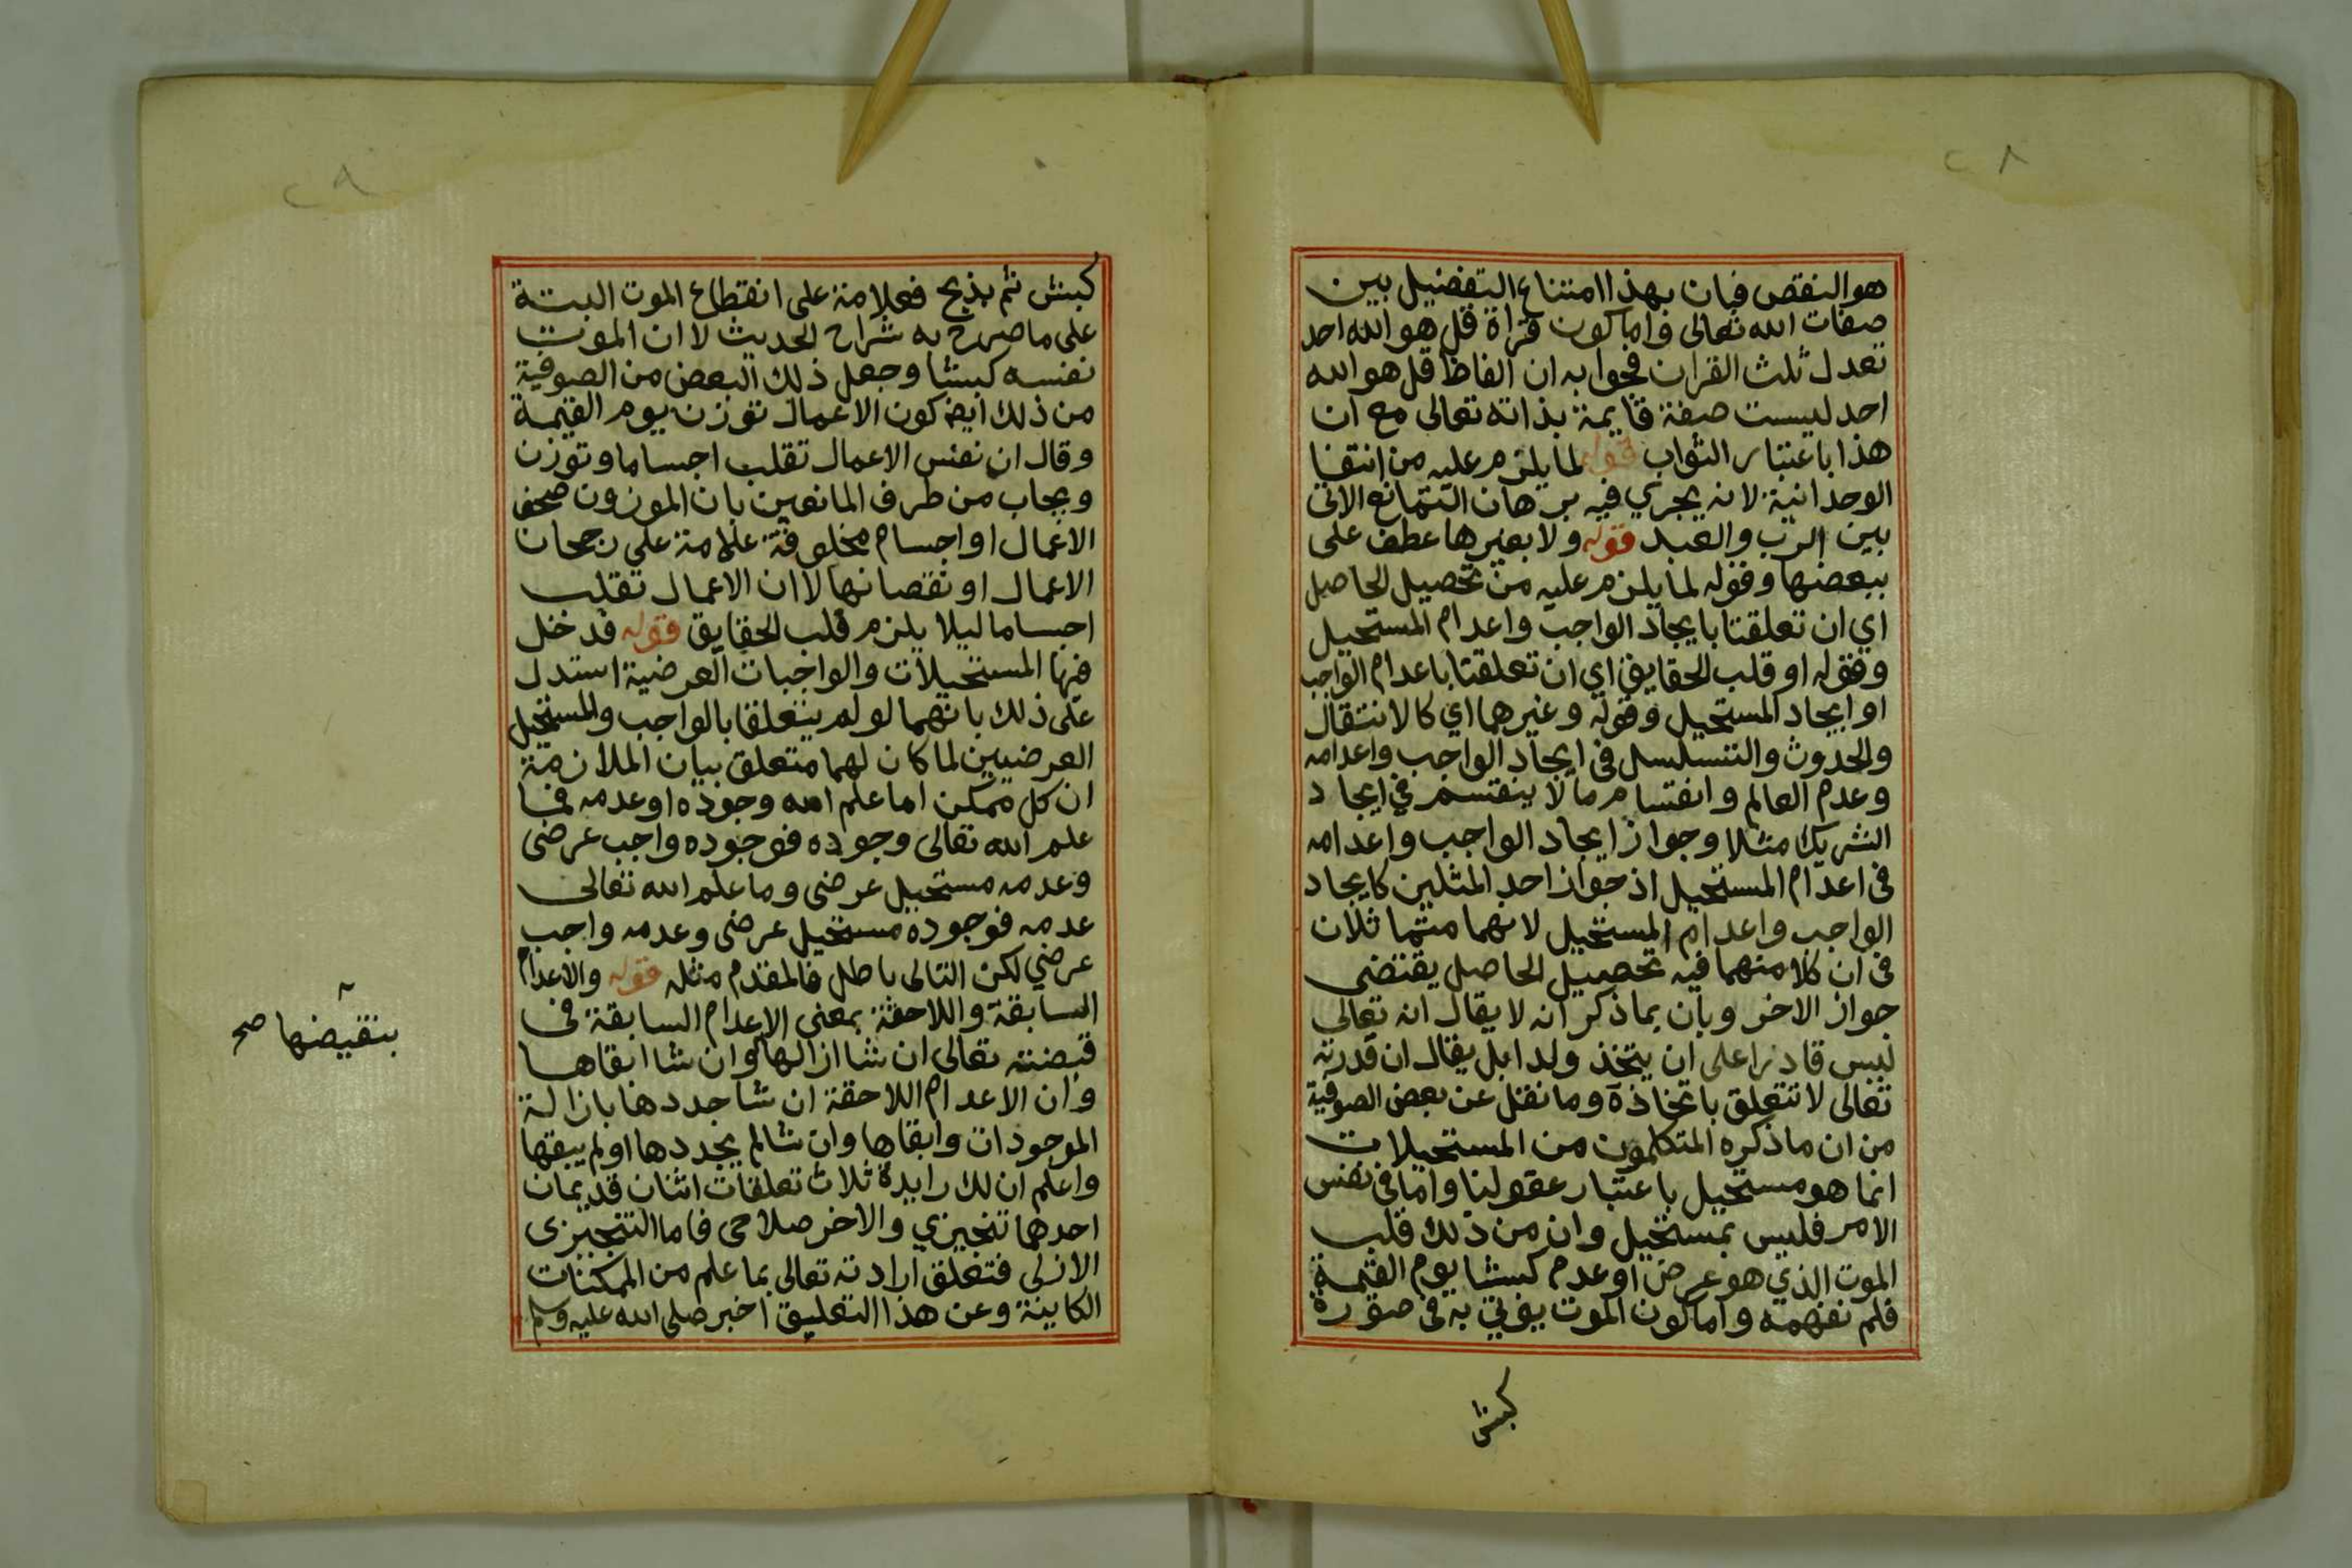 ٢٨
هو النقص فبان بهذا امتناع التفضيل بين
صفات الله تعالى واما كون قراة قل هو الله احد
تعدل ثلث القران فجوابه ان الفاظ قل هو الله
احد ليست صفة قايمة بذاته تعالى مع ان
هذا باعتبار الثواب قوله لما يلزم عليه من انتفا
الوحدانية لانه يجري فيه برهان التمانع الاتي
بين الرب والعبد قوله ولا بغيرها عطف على
ببعضها وقوله لما يلزم عليه من تحصيل الحاصل
اي ان تعلقتا بايجاد الواجب واعدام المستحيل
وقوله او قلب الحقايق اي ان تعلقتا باعدام الواجب
او ايجاد المستحيل وقوله وغيرهما اي كالانتقال
والحدوث والتسلسل في ايجاد الواجب واعدامه
وعدم العالم وانقسام ما لا ينقسم في ايجاد
الشريك مثلا وجواز ايجاد الواجب واعدامه
في اعدام المستحيل اذ جواز احد المثلين كايجاد
الواجب واعدام المستحيل لانهما متماثلان
في ان كلا منهما فيه تحصيل الحاصل يقتضي
جواز الاخر وبان بما ذكر انه لا يقال انه تعالى
ليس قادرا على ان يتخذ ولدا بل يقال ان قدرته
تعالى لا تتعلق باتخاذه وما نقل عن بعض الصوفية
من ان ما ذكره المتكلمون من المستحيلات
انما هو مستحيل باعتبار عقولنا واما في نفس
الامر فليس بمستحيل وان من ذلك قلب
الموت الذي هو عرض او عدم كبشا يوم القيمة
فلم نفهمه واما كون الموت يوتي به في صورة
كبش
٢٩
كبش ثم يذبح فعلامة على انقطاع الموت البتة
على ما صرح به شراح الحديث لا ان الموت
نفسه كبشا وجعل ذلك البعض من الصوفية
من ذلك ايضا كون الاعمال توزن يوم القيمة
وقال ان نفس الاعمال تقلب اجساما وتوزن
ويجاب من طرف المانعين بان الموزون صحف
الاعمال او اجسام مخلوقة علامة على رجحان
الاعمال او نقصانها لا ان الاعمال تقلب
اجساما ليلا يلزم قلب الحقايق قوله فدخل
فيها المستحيلات والواجبات العرضية استدل
على ذلك بانهما لو لم يتعلقا بالواجب والمستحيل
العرضيين لما كان لهما متعلق بيان الملازمة
ان كل ممكن اما علم الله وجوده او عدمه فما
علم الله تعالى وجوده فوجوده واجب عرضي
وعدمه مستحيل عرضي وما علم الله تعالى
عدمه فوجوده مستحيل عرضي وعدمه واجب
عرضي لكن التالى باطل فالمقدم مثله قوله والاعدام
السابقة واللاحقة بمعنى الاعدام السابقة في
قبضته تعالى ان شا ازالها وان شا ابقاها
بنقيضها صح
وان الاعدام اللاحقة ان شا جددها بازالة
الموجودات وابقاها وان شا لم يجددها او لم يبقها
واعلم ان للارايدة ثلاث تعلقات اثنان قديمان
احدهما تنجيزي والاخر صلاحي فاما التنجيزي
الازلي فتعلق ارادته تعالى بما علم من الممكنات
الكاينة وعن هذا التعليق اخبر صلى الله عليه وسلم